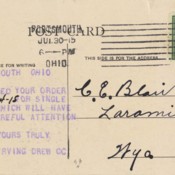 POST CARD
PORTSMOUTH
JUL 30-15
6-PM
OHIO
THIS SIDE IS FOR THE ADDRESS.
OUTH OHIO.
ED YOUR ORDER
FOR SINGLE
HICH WILL HAVE
REFUL ATTENTION
YOURS TRULY,
RVING DREW CO.
C. E. Blair
Laramie
Wyo